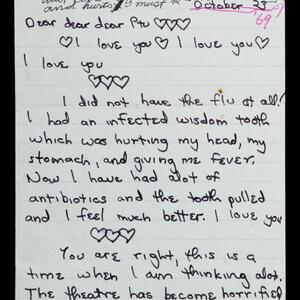 and hurts. I must
October 23
'69
Dear dear dear Pru ♡♡♡
♡ I love you ♡ I love you ♡
I love you
♡♡♡
I did not have the flu at all!
I had an infected wisdom tooth
which was hurting my head, my
stomach, and giving me fever.
Now I have had alot of
antibiotics and the tooth pulled
and I feel much better. I love you
♡♡♡
You are right, this is a
time when I am thinking alot.
The theatre has become horrified